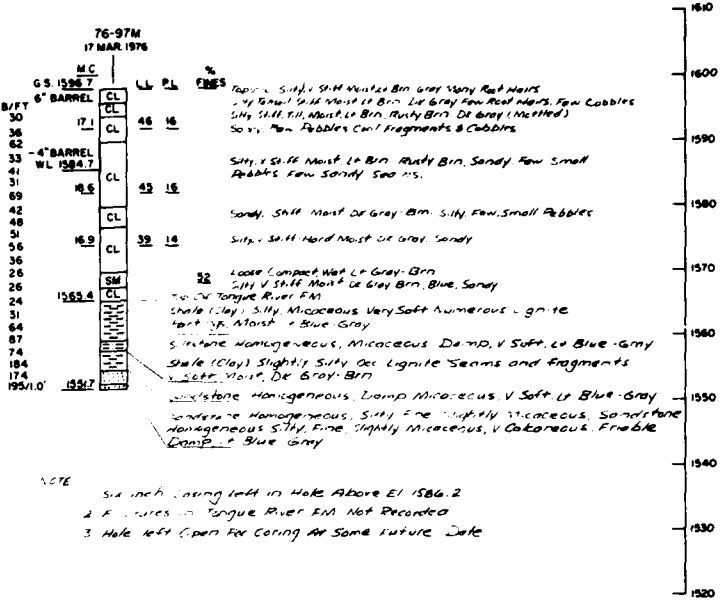 76-97M
17 MAR. 1976
M.C.
G.S. 1596.7
LL PL
% FINES
B/FT
6" BARREL
-4" BARREL
WL 1584.7
30
36
62
33
41
31
69
42
48
51
56
36
26
26
24
31
64
87
74
184
174
195/1.0'
CL
CL
CL
CL
CL
CL
SM
CL
17.1 46 16
18.6 45 16
16.9 39 14
52
1565.4
1551.7
Silty, v Stiff Moist Lt Brn Gray Many Root Hairs
Stiff Moist Lt Brn Dk Gray Few Root Hairs, Few Cobbles
Silty Stiff, Till, Moist, Lt Brn, Rusty Brn Dk Gray (Mottled)
Sandy, Few Pebbles Coal Fragments & Cobbles
Silty, v Stiff Moist, Lt Brn Rusty Brn, Sandy, Few Small
Pebbles Few Sandy Seams.
Sandy, Stiff Moist Dk Gray-Brn. Silty, Few, Small Pebbles
Silty, v Stiff-Hard Moist Dk Gray, Sandy
Loose Compact, Wet Lt Gray-Brn
Silty V Stiff Moist Dk Gray Brn, Blue, Sandy
Top Of Tongue River FM
Shale (Clay) Silty, Micaceous Very Soft Numerous Lignite
Moist Blue-Gray
Siltstone Homogeneous, Micaceous Damp, v Soft, Lt Blue-Gray
Shale (Clay) Slightly Silty Occ Lignite Seams and Fragments
v Soft Moist, Dk Gray-Brn
Sandstone Homogeneous, Damp Micaceous, V Soft, Lt Blue-Gray
Sandstone Homogeneous, Silty Fine Slightly Micaceous, Sandstone
Homogeneous Silty, Fine, Slightly Micaceous, v Calcareous, Friable
Damp, Lt Blue Gray
NOTE
Six inch Casing left in Hole Above El 1586.2
2 Fractures in Tongue River FM Not Recorded
3 Hole left Open For Coring At Some Future Date
1610
1600
1590
1580
1570
1560
1550
1540
1530
1520